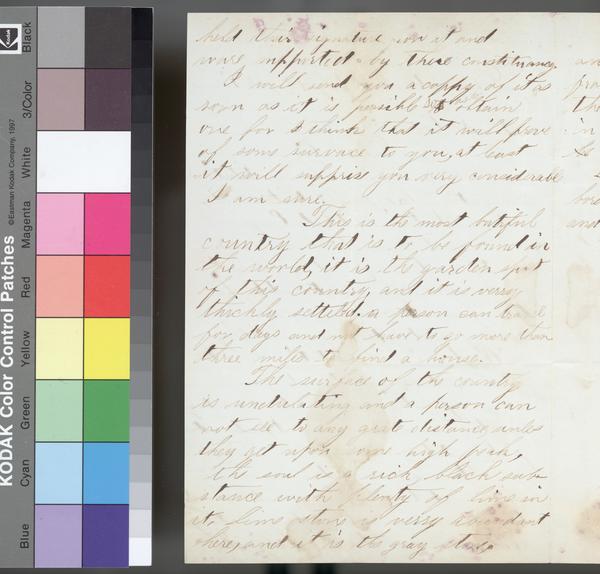 Kodak
©Eastman Kodak Company, 1997
KODAK Color Control Patches
Black
3/Color
White
Magenta
Red
Yellow
Green
Cyan
Blue
held their signature on it and
ware supported by there constituancy
I will send you a coppy of it as
soon as it is possible to obtain
one for I think that it will prove
of some survace to you, at least
it will supprise you very considerable
I am sure.
This is the most butiful
country that is to be found in
the world, it is the garden spot
of this country, and it is verry
thickly settled. a person can travel
for days and not have to go more than
three miles to find a house.
The surface of the country
is undulating and a person can
not see to any grat distance unless
they get upon some high peak,
the soul is a rich black sub-
stance with plenty of lime in
it, lime stone is verry abundant
here, and it is the gray stone